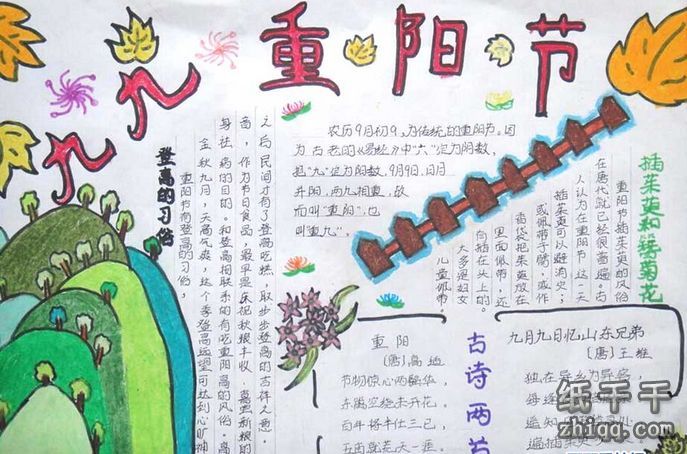 九九重阳节
农历9月初9,为传统的重阳节。因
为古老的《易经》中“六”定为阴数,
把“九”定为阳数,9月9日,日月
并阳,两九相重,故
而叫“重阳”,也
叫重九”。
插茱萸和簪菊花
重阳节插茱萸的风俗
在唐代就已经很普遍。古
人认为在重阳节这一天
插茱萸可以避消灾;
或佩带于臂,或作
香袋把茱萸放在
里面佩带,还
有插在头上的。
大多是妇女
儿童佩带。
登高的习俗
重阳节有登高的习俗,
金秋九月,天高气爽,这个季登高远望可达到心旷神
身祛病的目的。和登高相联系的有吃重阳高的风俗。高
音,作为节日食品,最早是庆祝秋粮丰收、喜尝新粮的
之后民间才有了登高吃糕,取步步登高的吉祥之意。
古诗两首
重阳
(唐)高适
节物惊心两鬓华,
东篱空绕未开花。
百年将半仕三已,
五亩就荒天一涯。
九月九日忆山东兄弟
(唐)王维
独在异乡为异客,
遥知
遍插茱萸
纸千千
zhiqq.com